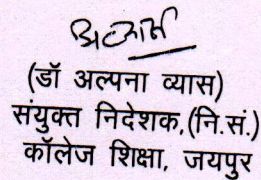 (डॉ अल्पना व्यास)
संयुक्त निदेशक,(नि.सं.)
कॉलेज शिक्षा, जयपुर